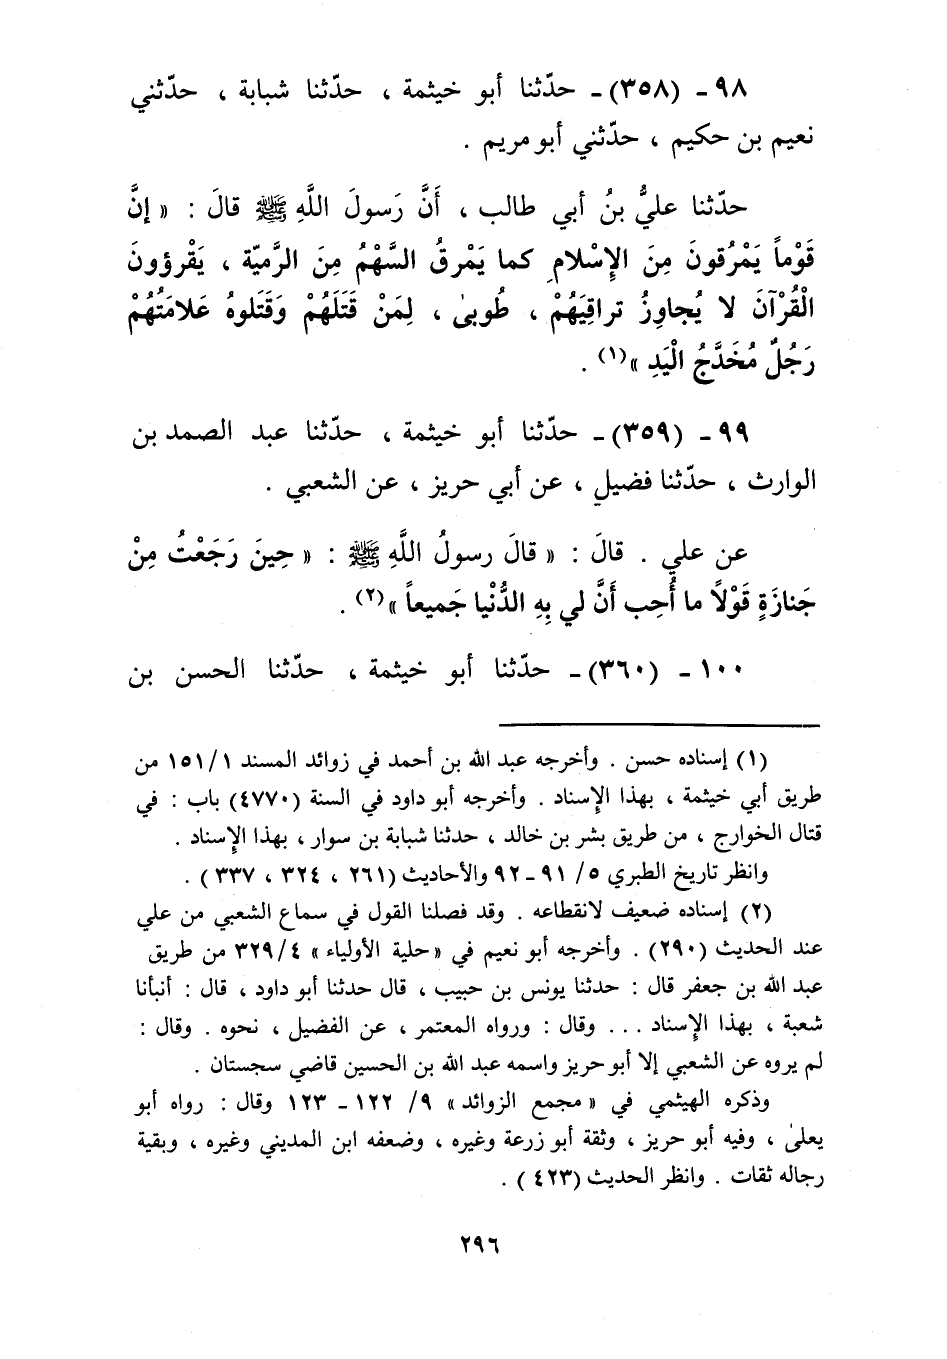 ٩٨ ـ (٣٥٨) ـ حدّثنا أبو خيثمة ، حدّثنا شبابة ، حدّثني
نعيم بن حكيم ، حدّثني أبو مريم .
حدّثنا عليُّ بنُ أبي طالب ، أَنَّ رَسولَ اللَّهِ ﷺ قالَ : « إنَّ
قَوْماً يَمْرُقونَ مِنَ الإِسْلامِ كما يَمْرقُ السَّهْمُ مِنَ الرَّميّة ، يَقْرؤونَ
الْقُرْآنَ لا يُجاوِزُ تراقِيَهُمْ ، طُوبىٰ ، لِمَنْ قَتَلَهُمْ وَقَتَلوهُ عَلامَتُهُمْ
رَجُلٌ مُخَدَّجُ الْيَدِ »(١) .
٩٩ ـ (٣٥٩) ـ حدّثنا أبو خيثمة ، حدّثنا عبد الصمد بن
الوارث ، حدّثنا فضيل ، عن أبي حريز ، عن الشعبي .
عن علي . قالَ : « قالَ رسولُ اللَّهِ ﷺ : « حِينَ رَجَعْتُ مِنْ
جَنازَةٍ قَوْلاً ما أُحِب أَنَّ لي بِهِ الدُّنْيا جَميعاً »(٢) .
١٠٠ ـ (٣٦٠) ـ حدّثنا أبو خيثمة ، حدّثنا الحسن بن
(١) إسناده حسن . وأخرجه عبد الله بن أحمد في زوائد المسند ١/ ١٥١ من
طريق أبي خيثمة ، بهذا الإسناد . وأخرجه أبو داود في السنة (٤٧٧٠) باب : في
قتال الخوارج ، من طريق بشر بن خالد ، حدثنا شبابة بن سوار ، بهذا الإسناد .
وانظر تاريخ الطبري ٥/ ٩١ ـ ٩٢ والأحاديث (٢٦١ ، ٣٢٤ ، ٣٣٧ ) .
(٢) إسناده ضعيف لانقطاعه . وقد فصلنا القول في سماع الشعبي من علي
عند الحديث (٢٩٠) . وأخرجه أبو نعيم في «حلية الأولياء » ٤/ ٣٢٩ من طريق
عبد الله بن جعفر قال : حدثنا يونس بن حبيب ، قال حدثنا أبو داود ، قال : أنبأنا
شعبة ، بهذا الإسناد ... وقال : ورواه المعتمر ، عن الفضيل ، نحوه . وقال :
لم يروه عن الشعبي إلا أبو حريز واسمه عبد الله بن الحسين قاضي سجستان .
وذكره الهيثمي في « مجمع الزوائد » ٩/ ١٢٢ ـ ١٢٣ وقال : رواه أبو
يعلىٰ ، وفيه أبو حريز ، وثقة أبو زرعة وغيره ، وضعفه ابن المديني وغيره ، وبقية
رجاله ثقات . وانظر الحديث (٤٢٣ ) .
٢٩٦